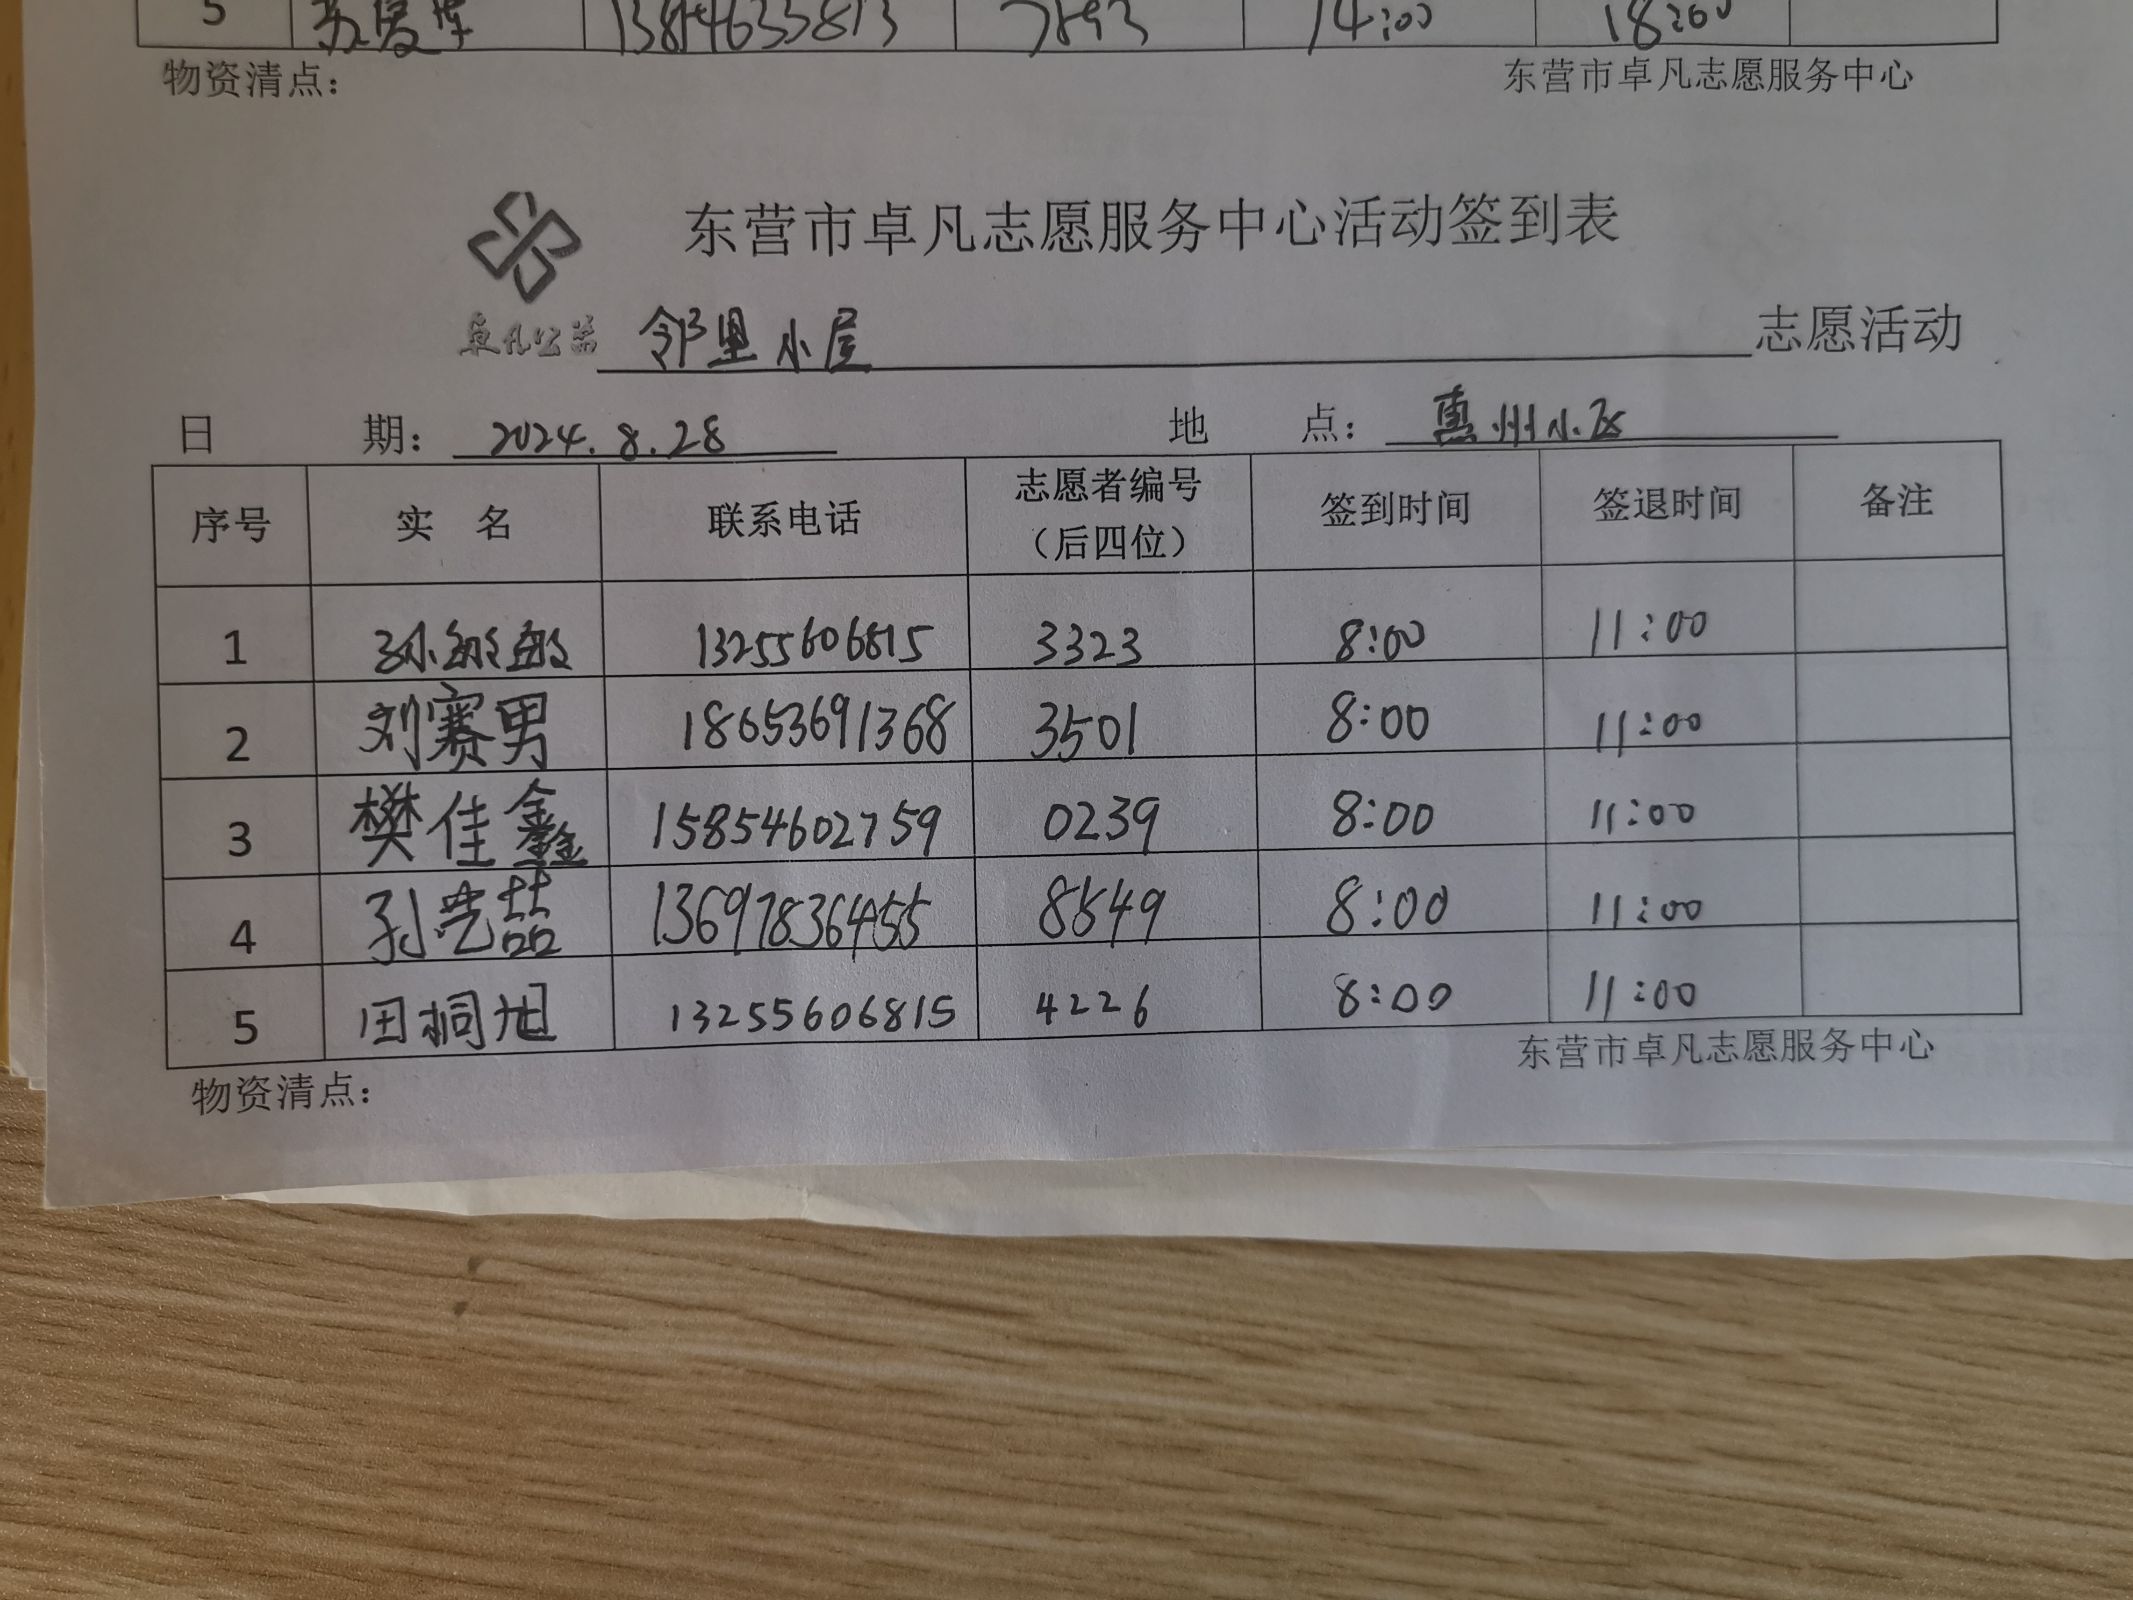 5 苏爱军 13854633813 7893 14:00 18:00
物资清点： 东营市卓凡志愿服务中心
东营市卓凡志愿服务中心活动签到表
卓凡公益 邻里小屋 志愿活动
日期：2024.8.28 地点：惠州小区
序号 实名 联系电话 志愿者编号（后四位） 签到时间 签退时间 备注
1 孙敏敏 13255606815 3323 8:00 11:00
2 刘赛男 18653691368 3501 8:00 11:00
3 樊佳鑫 15854602759 0239 8:00 11:00
4 孙艺喆 13697836455 8849 8:00 11:00
5 田桐旭 13255606815 4226 8:00 11:00
物资清点： 东营市卓凡志愿服务中心